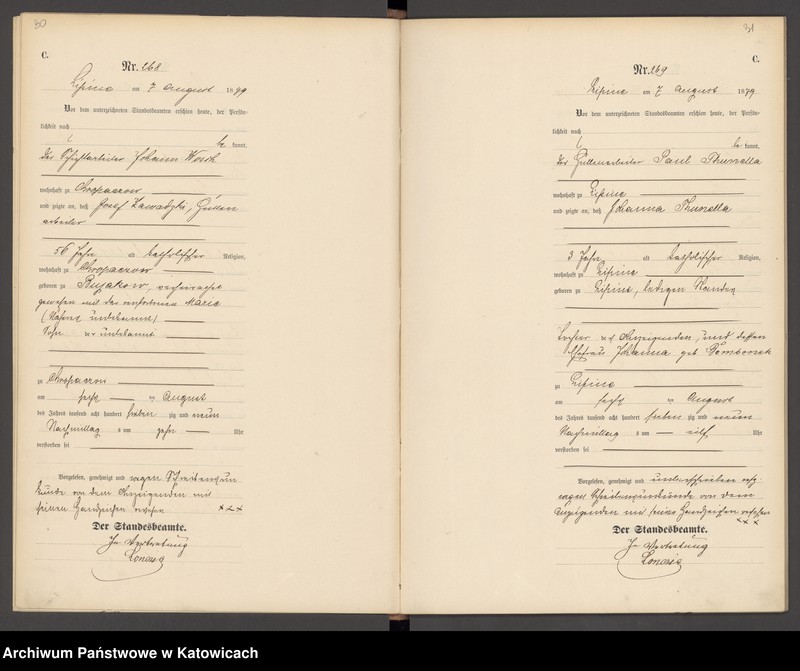 30
C.
Nr. 268
Lipine am 7 August 1879
Vor dem unterzeichneten Standesbeamten erschien heute, der Persön-
lichkeit nach
kannt,
der Johann
wohnhaft zu Chropaczow
und zeigte an, daß Josef Zawadzki, Hütten
arbeiter
56 Jahr alt katholischer Religion,
wohnhaft zu Chropaczow
geboren zu verheirathet
gewesen mit der verstorbenen Marie
(Name unbekannt)
Sohn der unbekannt
zu Chropaczow
am sechsten August
des Jahres tausend acht hundert sieben zig und neun
Nachmittag um zehn Uhr
verstorben sei
Vorgelesen, genehmigt und wegen Schreibensun
kunde von dem Anzeigenden mit
seinen Handzeichen versehen +++
Der Standesbeamte.
In Vertretung
31
C.
Nr. 269
Lipine am 7 August 1879
Vor dem unterzeichneten Standesbeamten erschien heute, der Persön-
lichkeit nach
kannt,
der Hüttenarbeiter Paul
wohnhaft zu Lipine
und zeigte an, daß Johanna
3 Jahr alt katholischer Religion,
wohnhaft zu Lipine
geboren zu Lipine, ledigen Standes
Tochter des Anzeigenden, und dessen
Ehefrau Johanna geb
zu Lipine
am sechsten August
des Jahres tausend acht hundert sieben zig und neun
Nachmittag um eilf Uhr
verstorben sei
Vorgelesen, genehmigt und
wegen Schreibensunkunde von dem
Anzeigenden mit seinen Handzeichen versehen
+++
Der Standesbeamte.
In Vertretung
Archiwum Państwowe w Katowicach